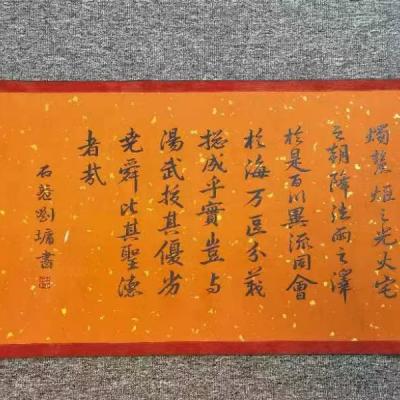 燭慧炬之光火宅
之朝降法雨之澤
於是百川異流同會
於海万區分義
揔成乎實豈与
湯武挍其優劣
堯舜比其聖德
者哉
石菴劉墉書